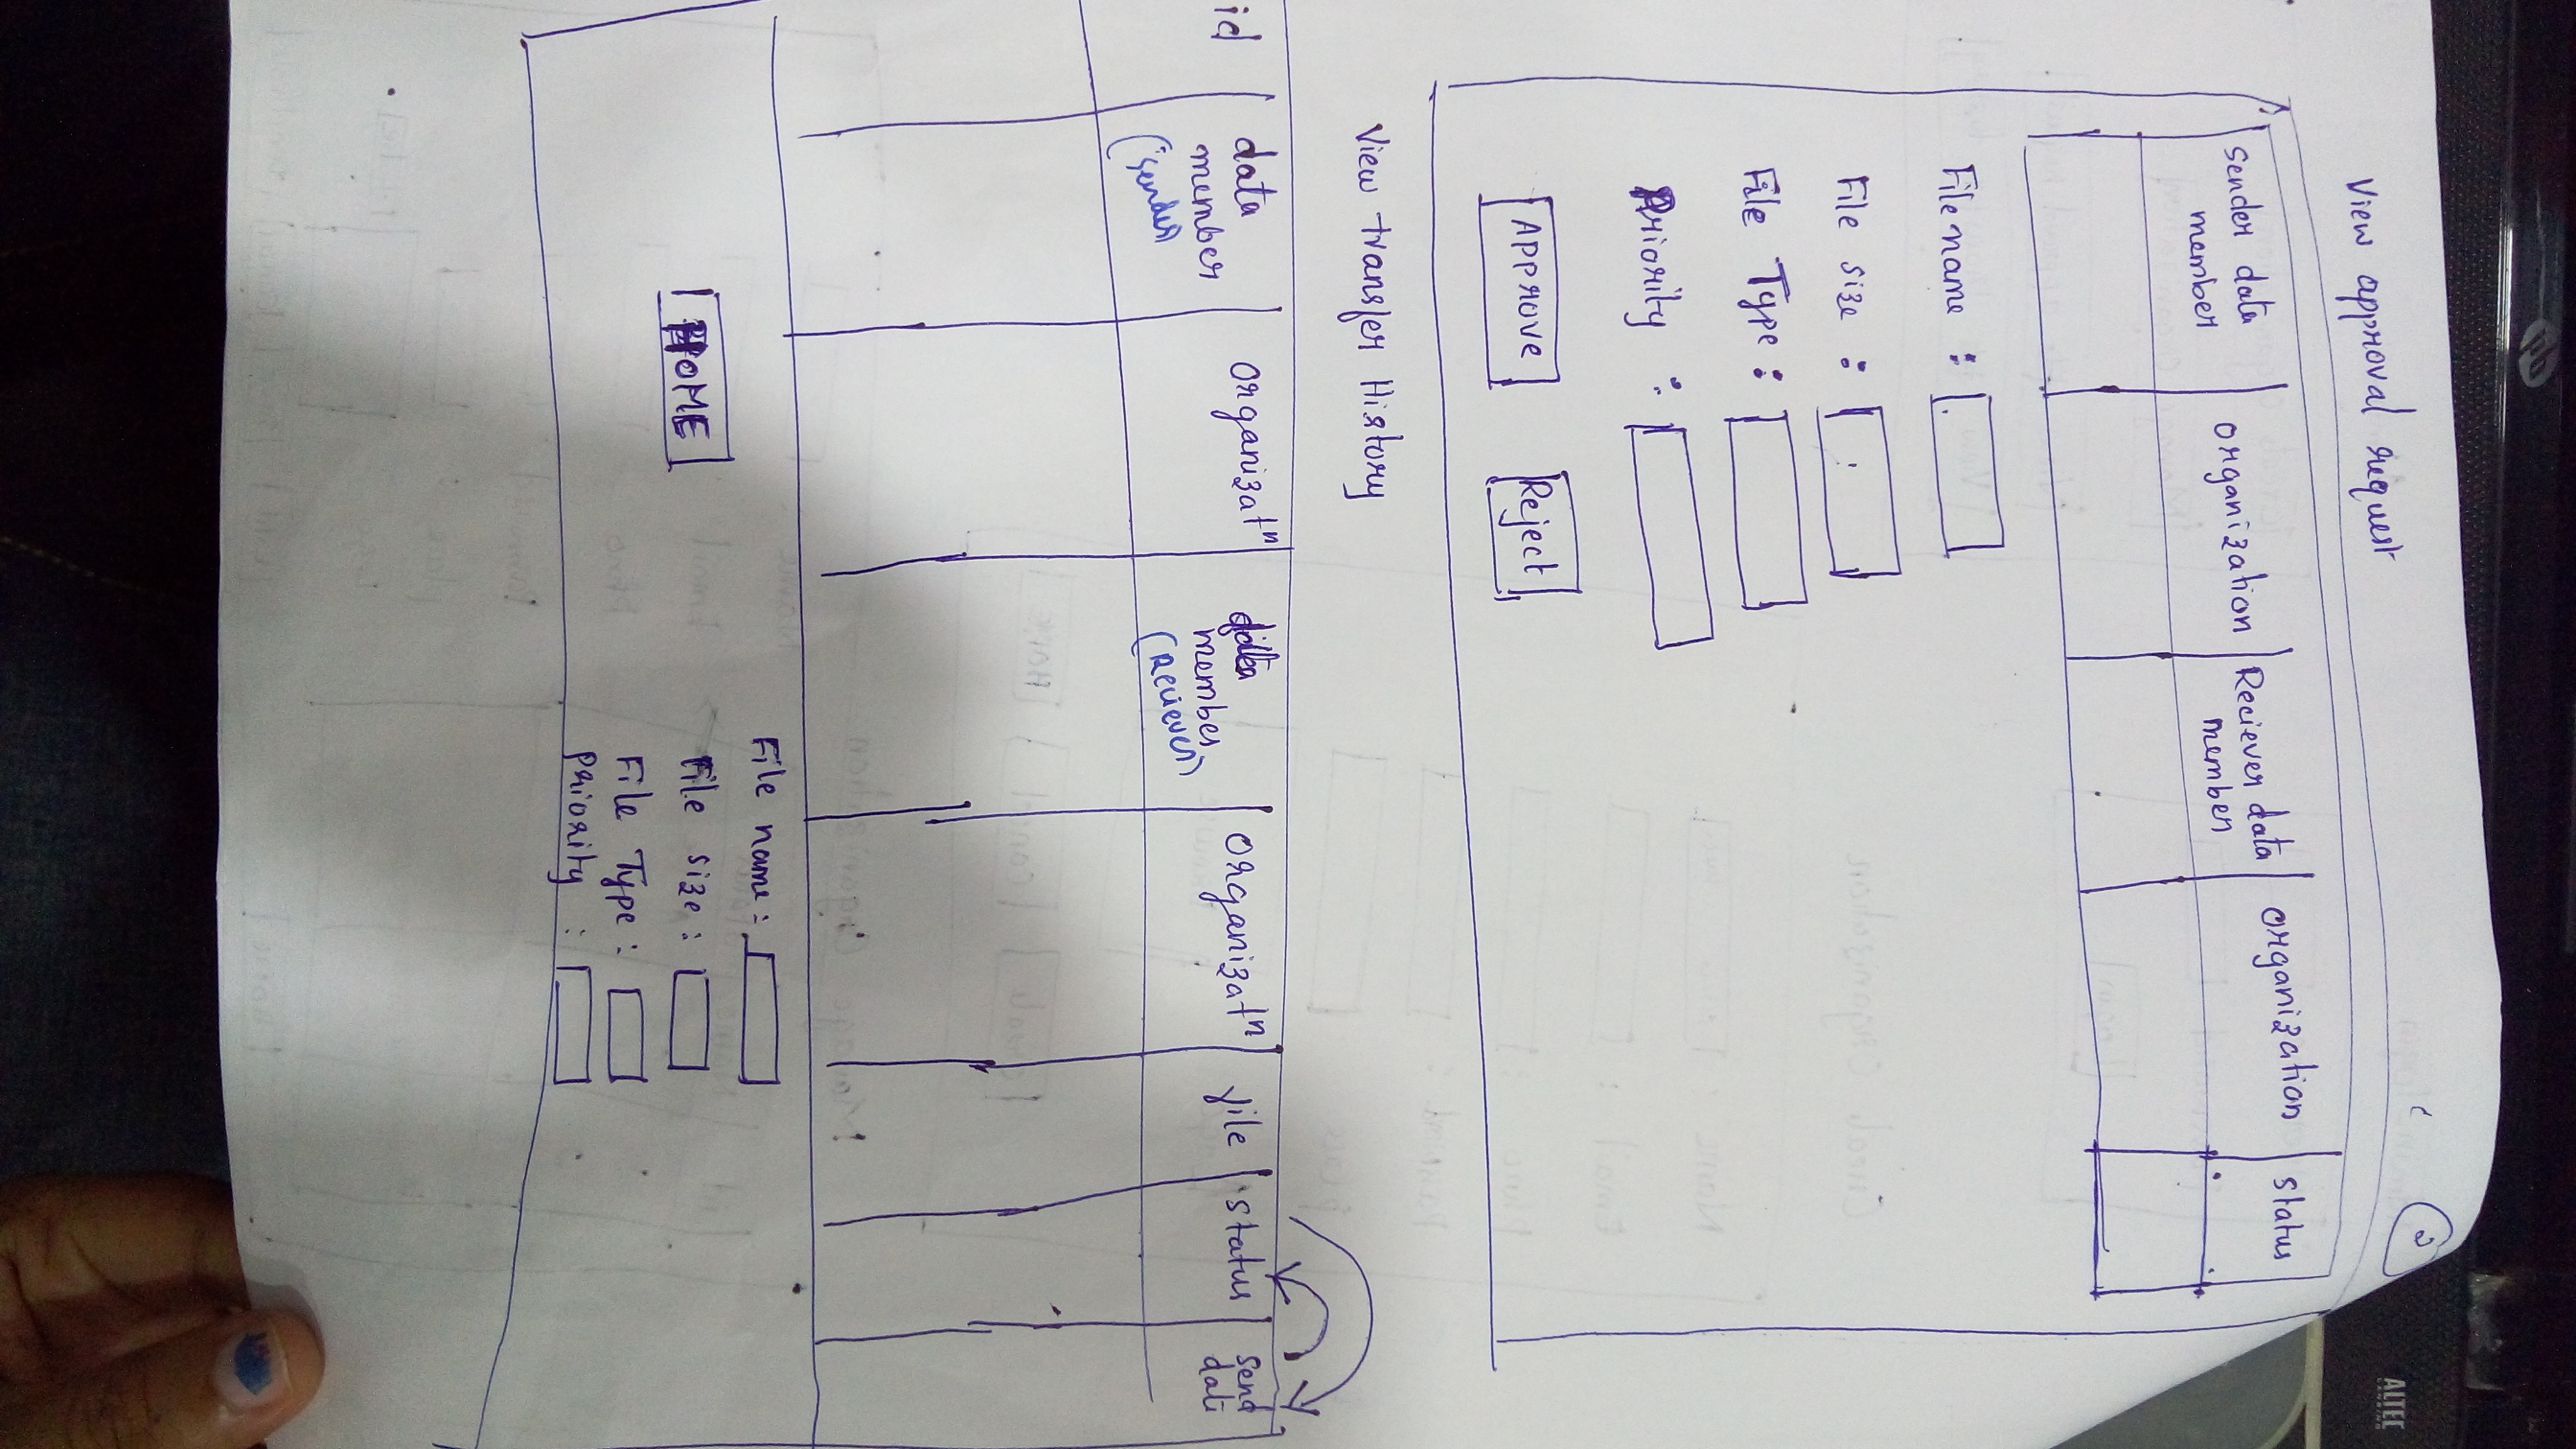 2
View approval request
Sender data
member
organization
Reciever data
member
organization
status
File name :
File size :
File Type :
Priority :
APPROVE
Reject
View transfer History
id
data
member
(sender)
organizatn
data
member
(reciever)
organizatn
file
status
send
date
File name :
File size :
File Type :
priority :
HOME
hp
ALTEC